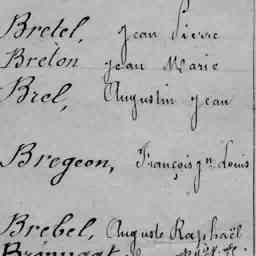 Bretel, Jean Pierre
Breton Jean Marie
Brel, Augustin Jean
Bregeon, François Jn Louis
Brebel, Auguste Raphaël